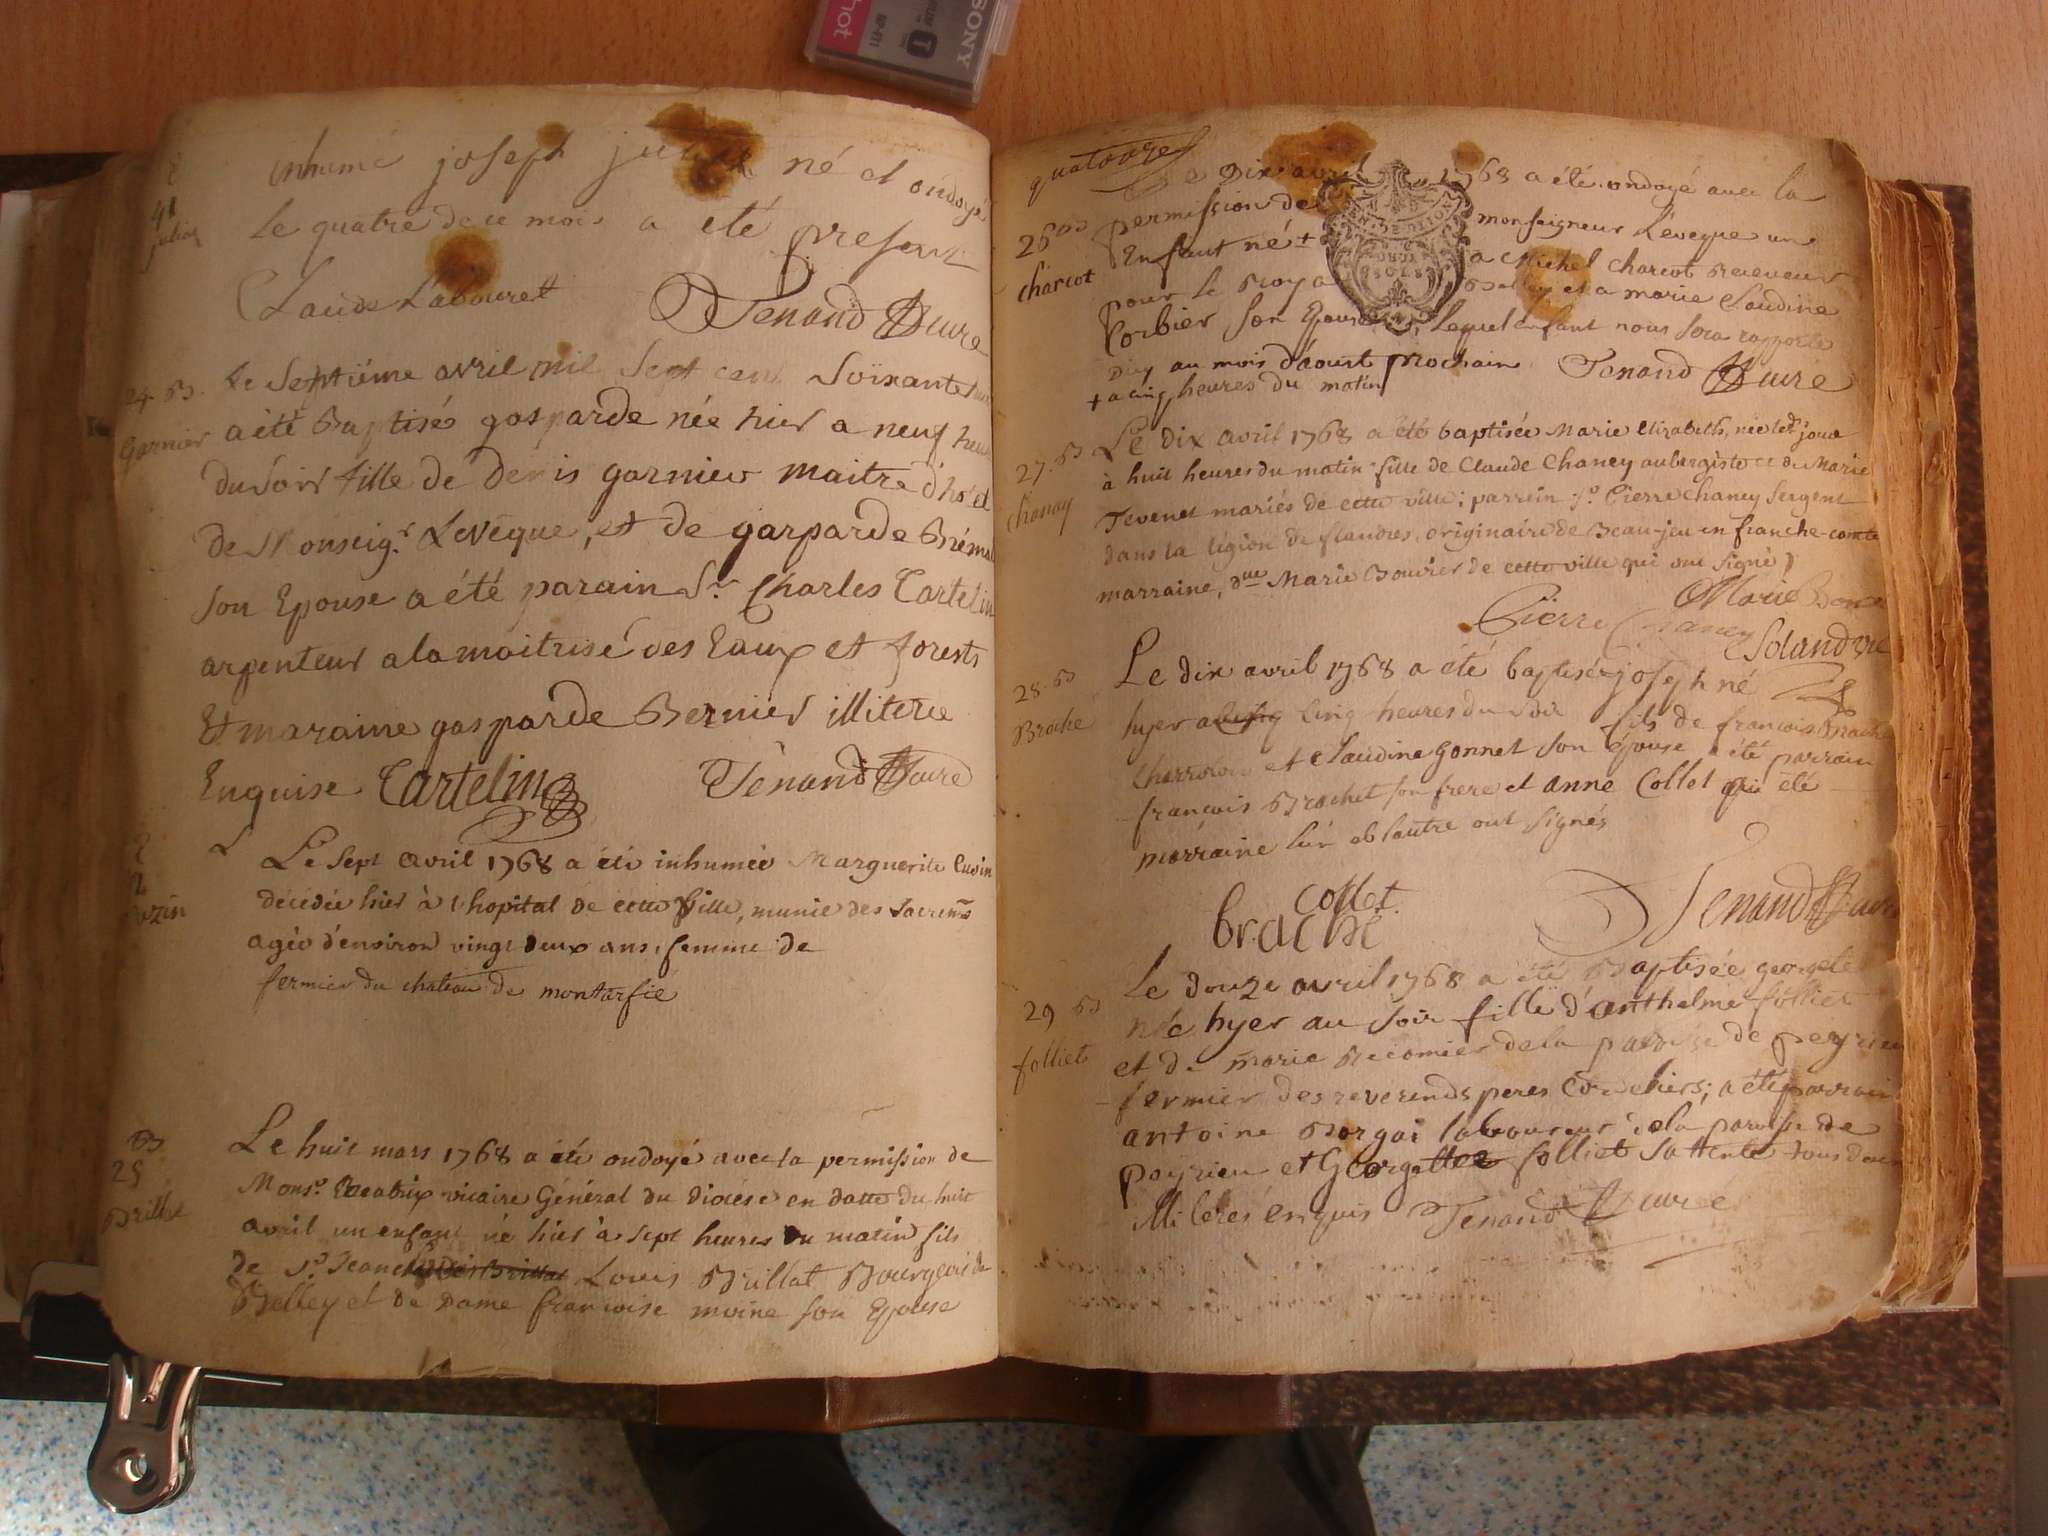 SONY
inhumé joseph né et ondoyé
le quatre de ce mois a été présent
Claude Labouret Tenand Curé
24. B. Le septiéme avril mil sept cent soixante huit
Garnier a été Baptisés gasparde née hier a neuf heures
du soir fille de denis garnier maitre d'hotel
de Monseigr. Levêque, et de gasparde
son Epouse a été parain Sr. Charles Cartelin
arpenteur a la maitrise des Eaux et forests
Et maraine gasparde Bernier illiterée
Enquise Cartelin Tenand Curé
Le sept avril 1768 a été inhumée Marguerite Cusin
décédée hier à l'hopital de cette ville, munie des Sacrems
agée d'environ vingt deux ans, femme de
fermier du chateau de montarfié
B
25
Brillat
Le huit mars 1768 a été ondoyé avec la permission de
Monsr. vicaire Général du diocése en datte du huit
avril un enfant né hier à sept heures du matin fils
de Sr. Jean Louis Brillat Bourgeois de
Belley et de Dame francoise moine son Epouse
quatorze
Le Dix avril 1768 a été ondoyé avec la
26 B permission de monseigneur L'éveque un
charcot Enfant né + a Michel charcot Receveur
pour le Roy a Belley et a marie Claudine
Corbier son Epouse, lequel enfant nous sera rapporté
Dicy au mois d'aoust prochain Tenand Curé
+ a cinq heures du matin
27. B Le dix avril 1768 a été baptisée Marie Elizabeth, née led. jour
chaney à huit heures du matin fille de Claude Chaney aubergiste et de Marie
Tevenet mariés de cette ville; parrein Sr. Pierre Chaney Sergent
dans la légion de flandres, originaire de Beau-jeu en franche-comté
marraine, dlle Marie Bouvier de cette ville qui ont signé)
Pierre Chaney Marie
28. B Le dix avril 1768 a été baptisé joseph né
Brache hyer a cinq heures du soir fils de francois Brache
et Claudine gonnet son épouse a été parrain
francois Brachet son frere et anne Collet qui été
marraine l'un et lautre ont signés
collet.
braché Tenand Curé
29 B Le douze avril 1768 a été Baptisée georgete
folliet née hyer au soir fille d'anthelme folliet
et de marie Recomier de la paroisse de peyrieu
fermier des reverends peres Cordeliers; a été parrain
antoine laboureur de la paroisse de
peyrieu et Georgette folliet sa tente tous deux
illiterés enquis Tenand Curé